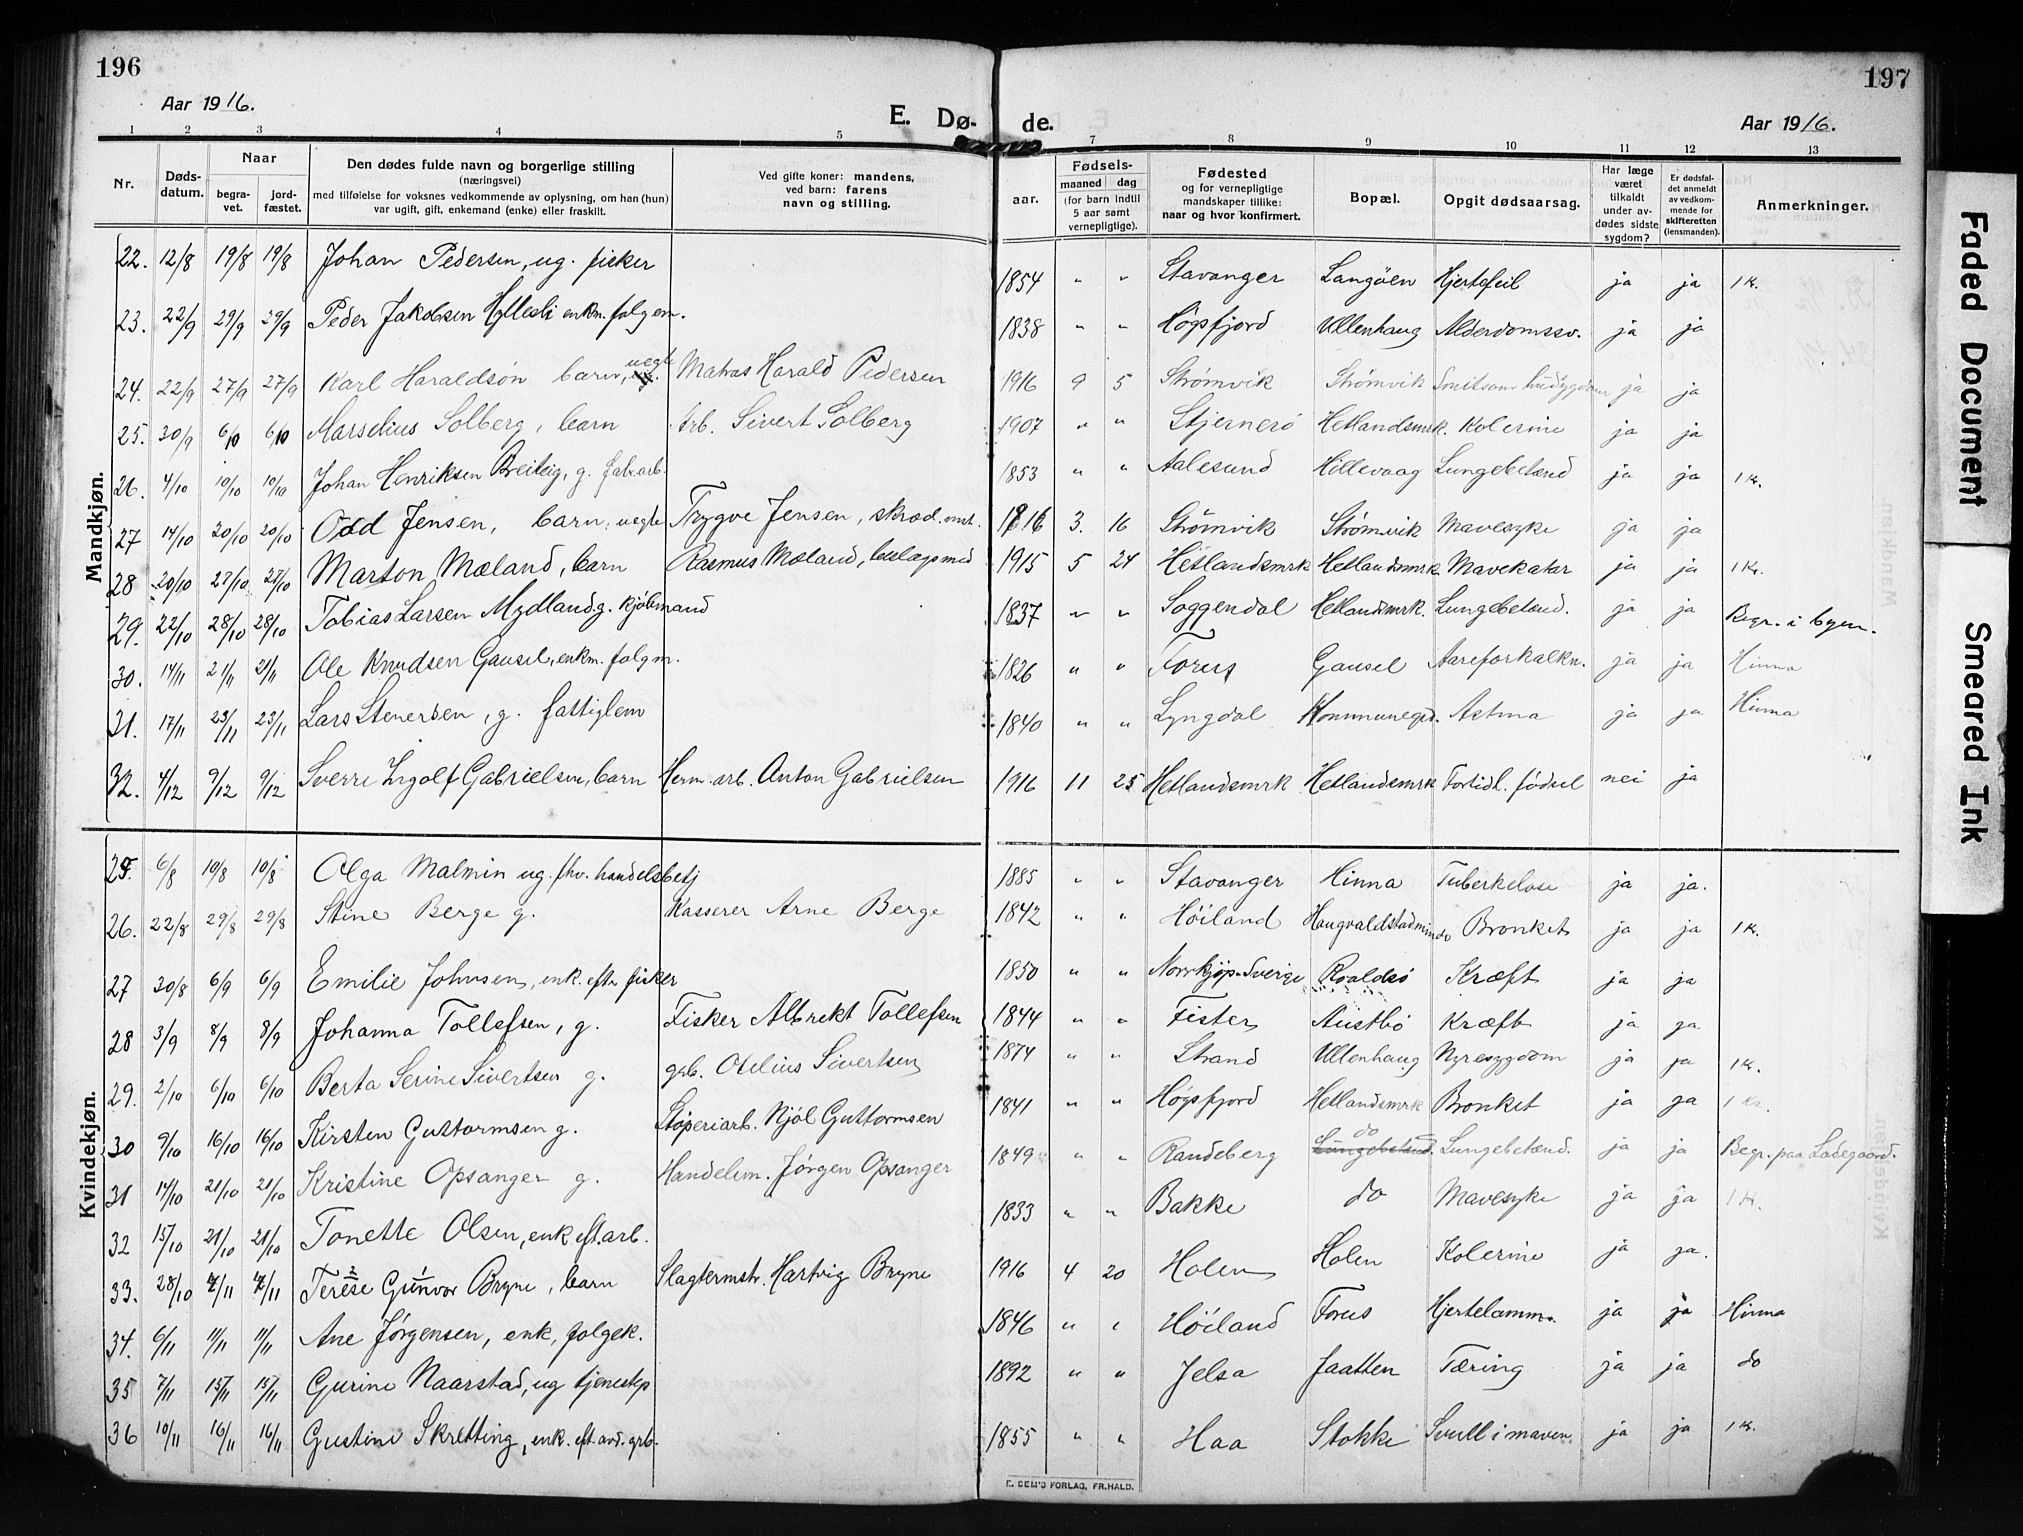 196
Aar 1916.
E. Dø-
1 2 3 4 5
Nr.
Døds-
datum.
Naar
begra-
vet.
jord-
fæstet.
Den dødes fulde navn og borgerlige stilling
(næringsvei)
med tilføielse for voksnes vedkommende av oplysning, om han (hun)
var ugift, gift, enkemand (enke) eller fraskilt.
Ved gifte koner: mandens,
ved barn: farens
navn og stilling.
Mandkjøn.
22. 12/8 19/8 19/8 Johan Pedersen, ug. fisker
23. 22/9 29/9 29/9 Peder Jakobsen Hyllesli enkm. folgem.
24. 22/9 27/9 27/9 Karl Haraldsøn barn, uegte Matros Harald Pedersen
25. 30/9 6/10 6/10 Marselius Solberg, barn Arb. Sivert Solberg
26. 4/10 10/10 10/10 Johan Henriksen Breileig, g. fabr.arb.
27 14/10 20/10 20/10 Odd Jensen, barn, uegte Trygve Jensen, skræd.mst.
28 20/10 27/10 27/10 Marton Mæland, barn Rasmus Mæland, beslagsmed
29. 22/10 28/10 28/10 Tobias Larsen Mydland g. kjøbmand
30. 14/11 21/11 21/11 Ole Knudsen Gausel, enkm. folgm.
31. 17/11 23/11 23/11 Lars Stenersen, g. fattiglem
32. 4/12 9/12 9/12 Sverre Ingolf Gabrielsen, barn Herm. arb. Anton Gabrielsen
Kvindekjøn.
25. 6/8 10/8 10/8 Olga Malmin ug. fhv. handelsbetj
26. 22/8 29/8 29/8 Stine Berge g. Kasserer Arne Berge
27 30/8 6/9 6/9 Emilie Johnsen, enk. eftr fisker
28 3/9 8/9 8/9 Johanna Tollefsen, g. Fisker Albrekt Tollefsen
29. 2/10 6/10 6/10 Berta Serine Sivertsen g. grb. Otelius Sivertsen
30 9/10 16/10 16/10 Kirsten Guttormsen g. Støperiarb. Njøl Guttormsen
31 14/10 21/10 21/10 Kristine Opsanger g. Handelsm. Jørgen Opsanger
32 15/10 21/10 21/10 Tonette Olsen, enk eft. arb.
33. 28/10 4/11 4/11 Terese Gunvor Bryne, barn Slagtermstr. Hartvig Bryne
34. 6/11 11/11 11/11 Ane Jørgensen, enk, folgek.
35 7/11 15/11 15/11 Gurine Naarstad, ug tjenestep
36 10/11 16/11 16/11 Gustine Skretting, enk. eft. avd. grb.
197
de.
Aar 1916.
7 8 9 10 11 12 13
Fødsels-
aar.
maaned
dag
(for barn indtil
5 aar samt
vernepligtige).
Fødested
og for vernepligtige
mandskaper tillike:
naar og hvor konfirmert.
Bopæl.
Opgit dødsaarsag.
Har læge
været
tilkaldt
under av-
dødes sidste
sygdom?
Er dødsfal-
det anmeldt
av vedkom-
mende for
skifteretten
(lensmanden).
Anmerkninger.
1854 " " Stavanger Langøen Hjertefeil ja ja 1 Kr.
1838 " " Høgsfjord Ullenhaug Alderdomssv. ja ja
1916 9 5 Strømvik Strømvik Smitsom hudsygdom ja ja
1907 " " Stjernerø Hetlandsmrk. Kolerine ja ja
1853 " " Aalesund Hillevaag Lungebetænd ja ja 1 Kr.
1916 3. 16 Strømvik Strømvik Mavesyke ja ja
1915 5 24 Hetlandsmrk Hetlandsmrk Mavekatar ja ja 1 Kr.
1837 " " Soggendal Hetlandsmrk. Lungebetænd. ja ja Begr. i byen.
1826 " " Forus Gausel Aareforkalkn. ja ja Hinna
1840 " " Lyngdal Kommunegrd. Astma ja ja Hinna
1916 11 25 Hetlandsmrk Hetlandsmrk Fortidl. fødsel nei ja
1885 " " Stavanger Hinna Tuberkelose ja ja.
1842 " " Høiland Haugvaldstadminde Bronket ja ja 1 Kr.
1850 " " Norrkjøp. Sverige Roaldsø Kræft ja ja
1844 " " Fister Austbø Kræft ja ja
1874 " " Strand Ullenhaug Nyresygdom ja ja 1 Kr.
1841 " " Høgsfjord Hetlandsmrk Bronket ja ja 1 Kr.
1849 " " Randeberg Lungebetænd. do Lungebetænd. ja ja Begr. paa Ladegaard.
1833 " " Bakke do Mavesyke ja ja 1 Kr.
1916 4 20 Holen Holen Kolerine ja ja.
1846 " " Høiland Forus Hjertelamm. ja ja Hinna
1892 " " Jelsa Jaatten Tæring ja ja do
1855 " " Haa Stokke Svull i maven ja ja 1 Kr.
E. SEM'S FORLAG, FR.HALD.
Faded Document
Smeared Ink